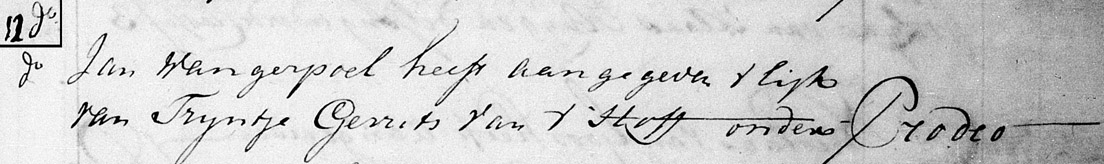 12 do
do Jan Van gerpoel heeft aangegeven t lijk
van Tryntje Gerrits Van t Hoff onder Prodeo